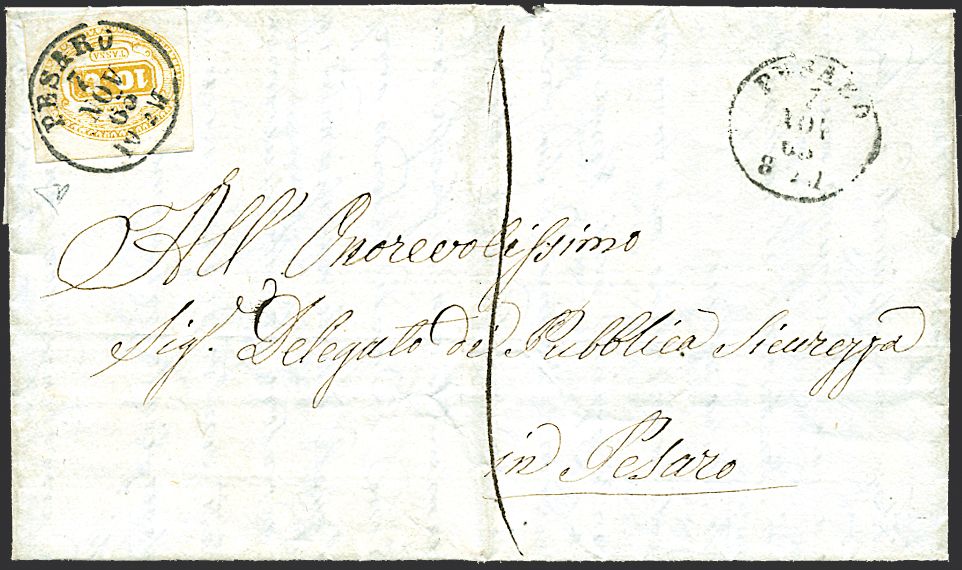 PESARO
7
NOV
63
10 M
10 C.
TASSA
PESARO
7
NOV
63
8
All' Onorevolissimo
Sig.r Delegato di Pubblica Sicurezza
in Pesaro